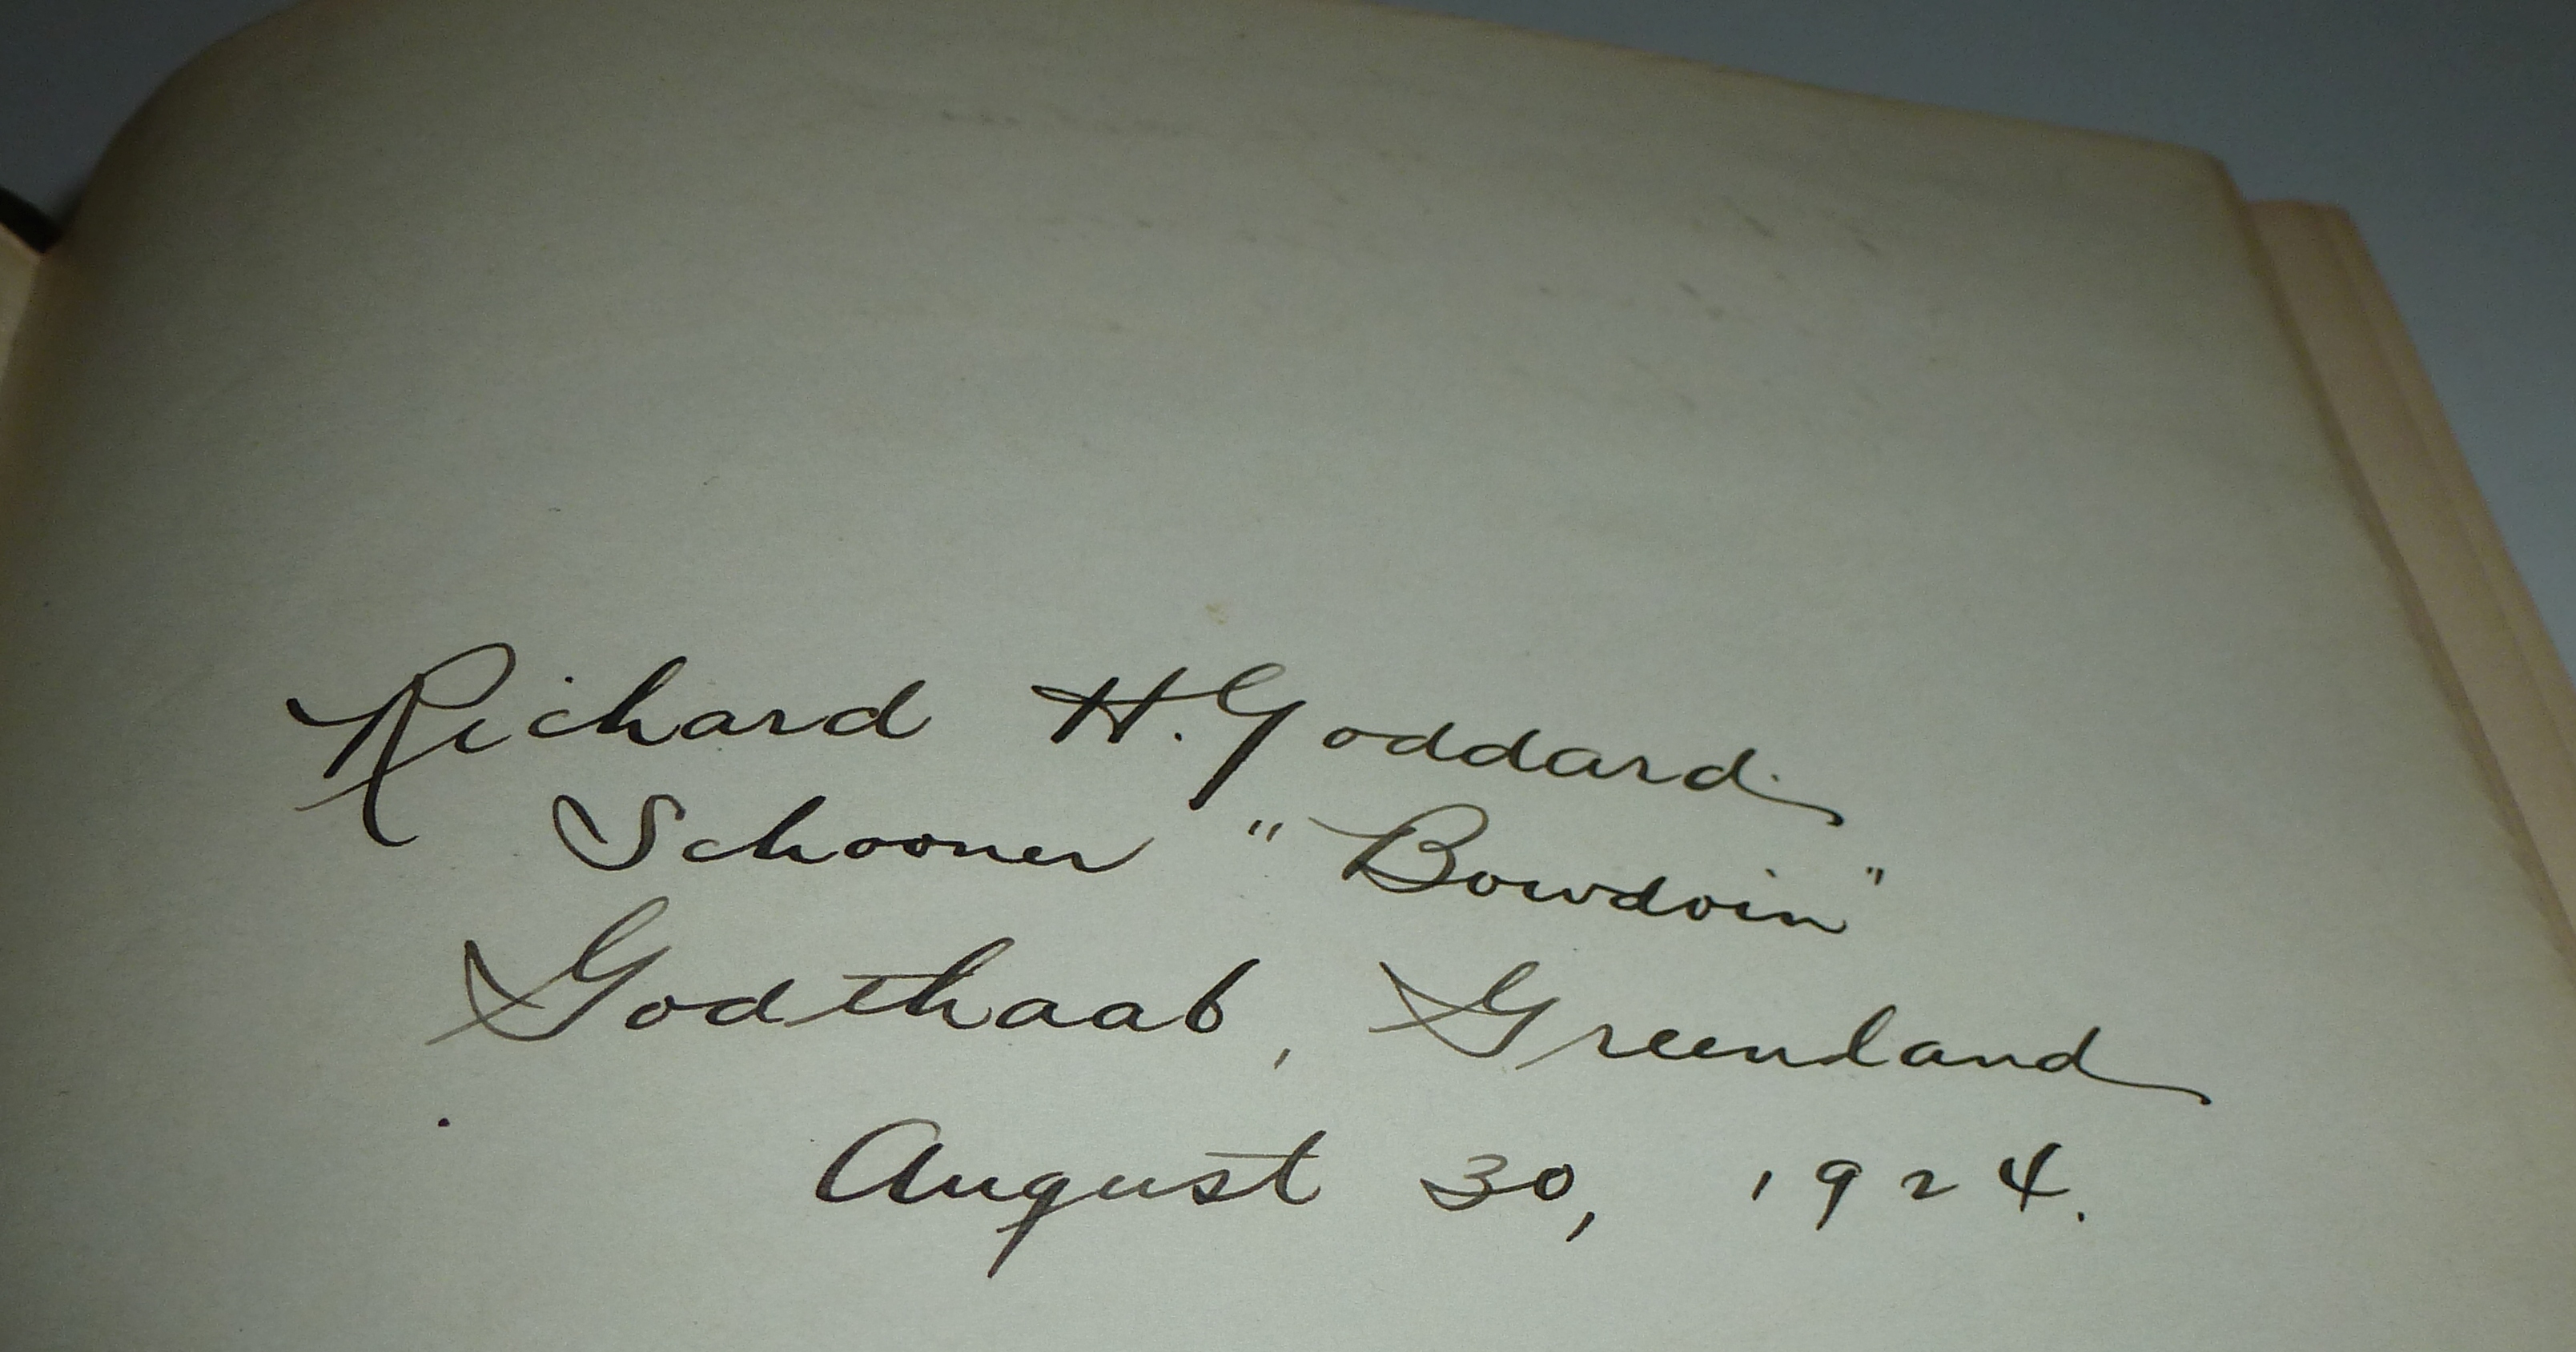 Richard H. Goddard.
Schooner "Bowdoin"
Godthaab, Greenland
August 30, 1924.